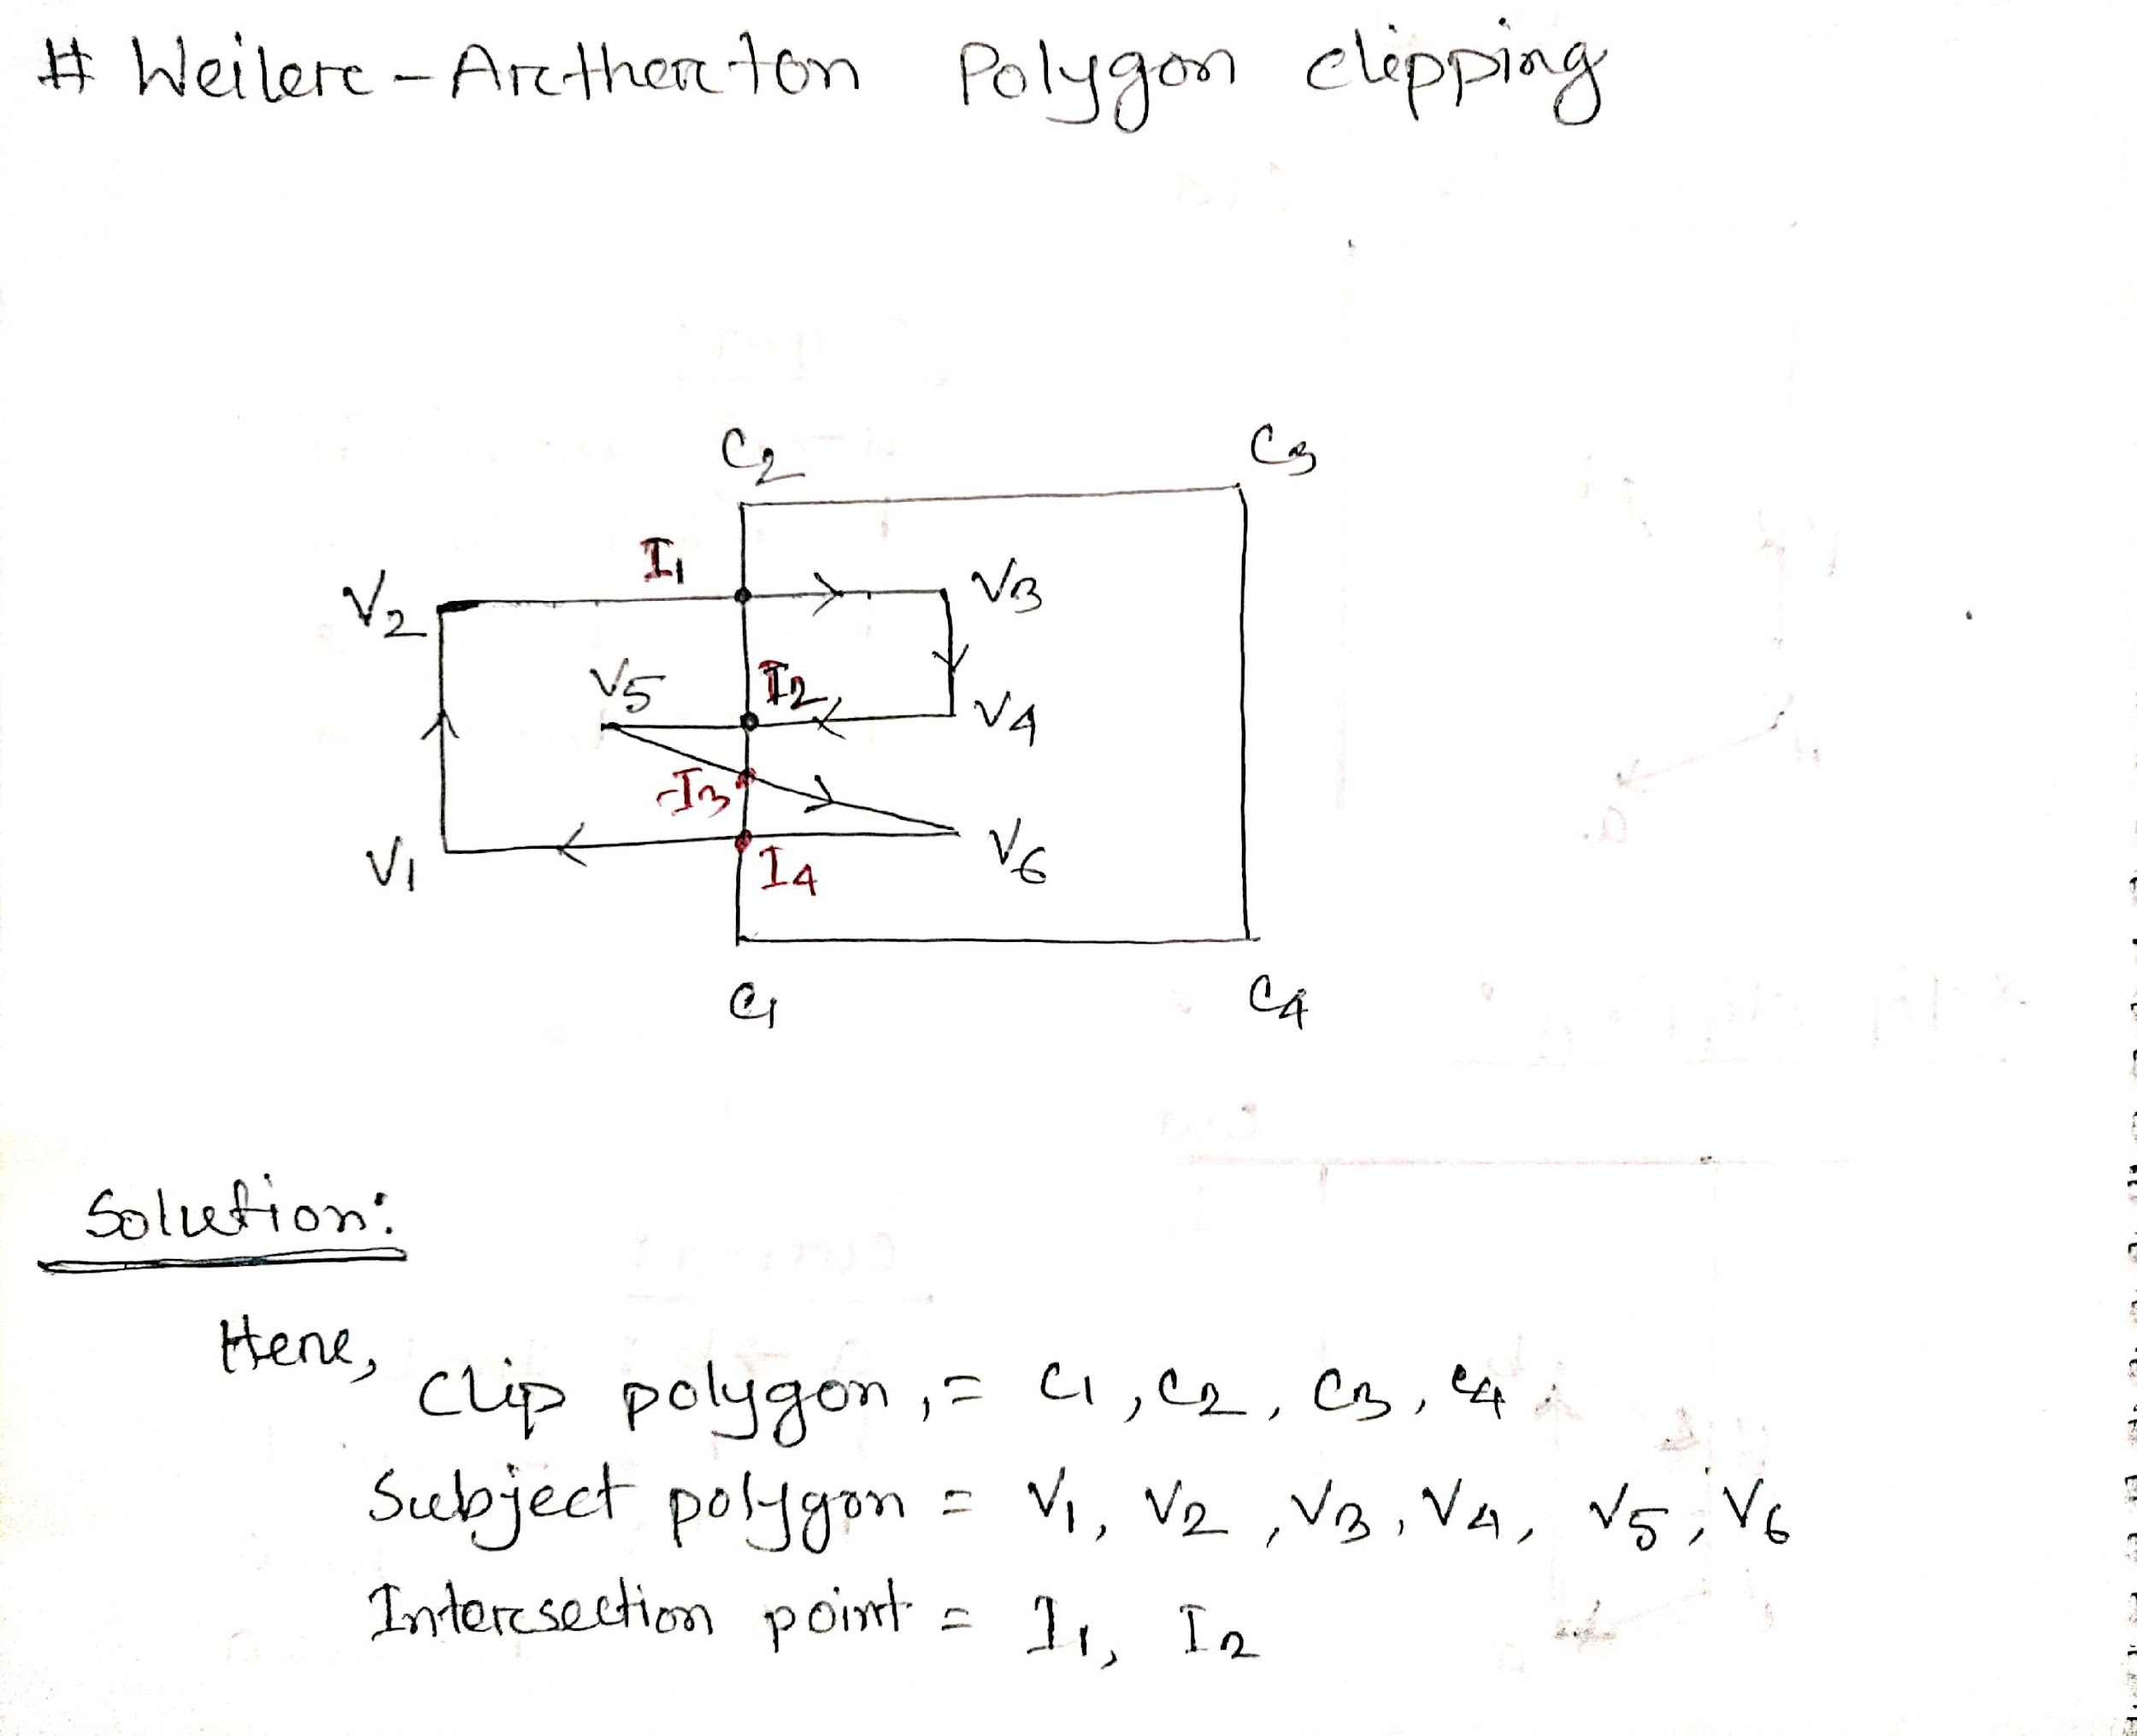 # Weilerc-Arcthercton Polygon clipping
C2 C3
I1
V2 V3
V5 I2 V4
I3
V1 I4 V6
C1 C4
Solution:
Here,
Clip polygon,= C1, C2, C3, C4.
Subject polygon = V1, V2, V3, V4, V5, V6
Intercsection point = I1, I2